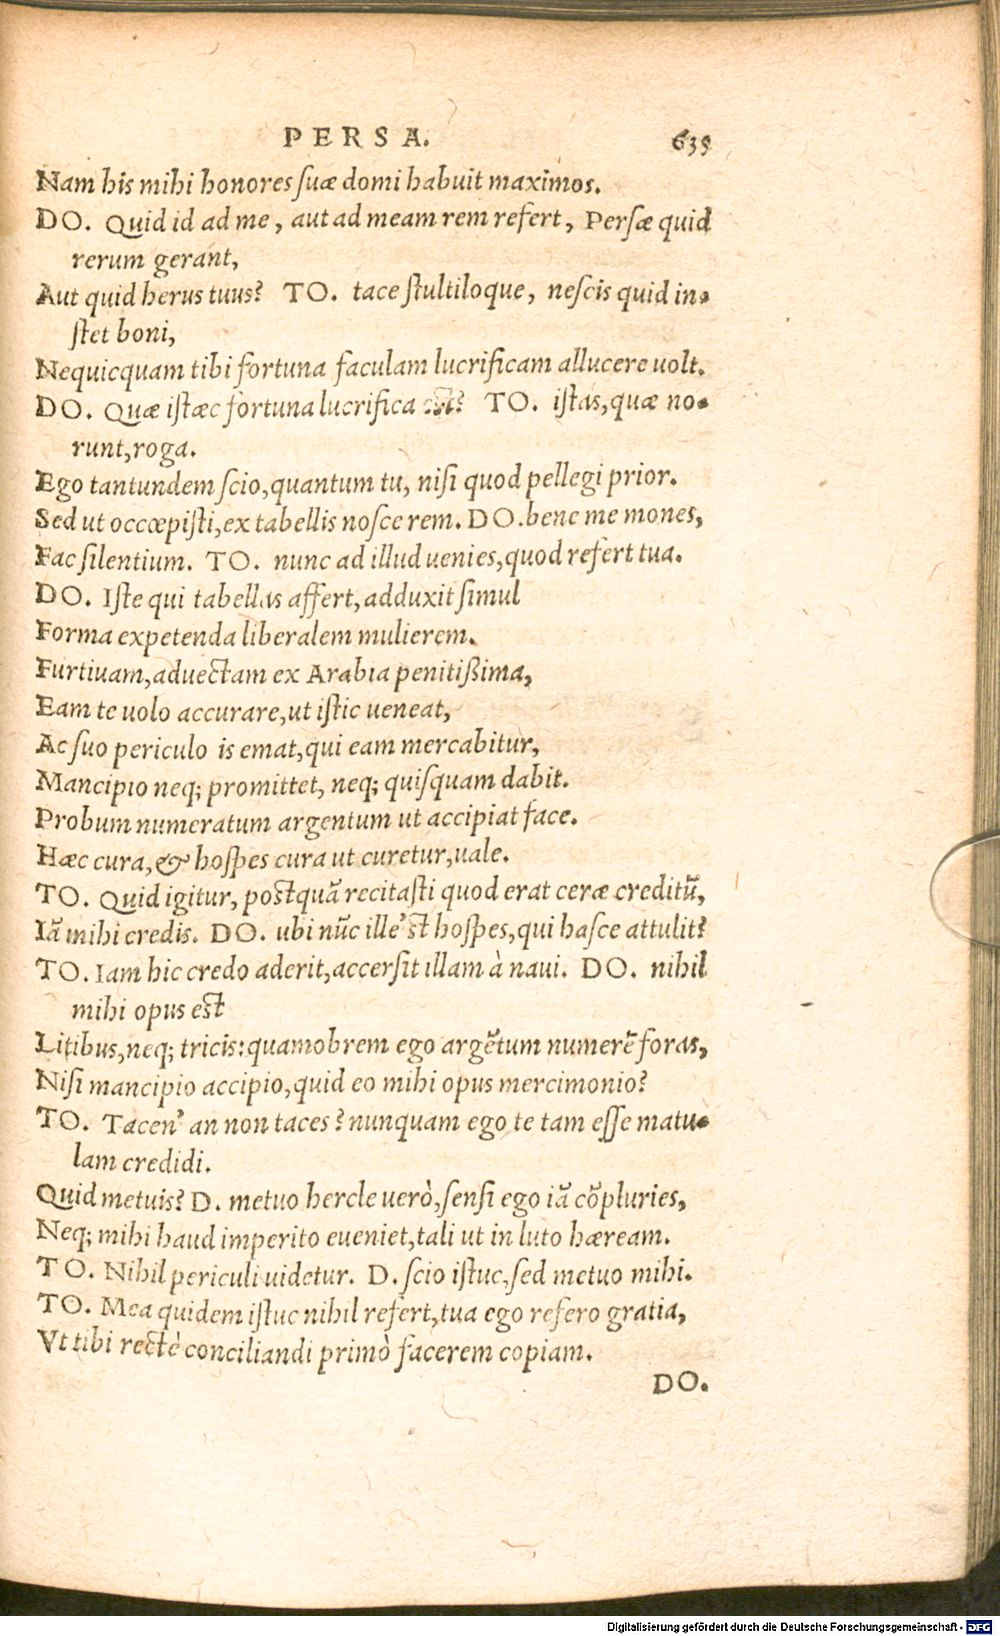 PERSA. 635
Nam his mihi honores suæ domi habuit maximos.
DO. Quid id ad me, aut ad meam rem refert, Persæ quid
rerum gerant,
Aut quid herus tuus? TO. tace stultiloque, nescis quid in-
stet boni,
Nequicquam tibi fortuna faculam lucrificam allucere uolt.
DO. Quæ istæc fortuna lucrifica est? TO. istas, quæ no-
runt, roga.
Ego tantundem scio, quantum tu, nisi quod pellegi prior.
Sed ut occœpisti, ex tabellis nosce rem. DO. bene me mones,
Fac silentium. TO. nunc ad illud uenies, quod refert tua.
DO. Iste qui tabellas affert, adduxit simul
Forma expetenda liberalem mulierem.
Furtiuam, aduectam ex Arabia penitißima,
Eam te uolo accurare, ut istic ueneat,
Ac suo periculo is emat, qui eam mercabitur,
Mancipio neq; promittet, neq; quisquam dabit.
Probum numeratum argentum ut accipiat face.
Hæc cura, & hospes cura ut curetur, uale.
TO. Quid igitur, postquã recitasti quod erat ceræ creditũ,
Iã mihi credis. DO. ubi nũc ille'st hospes, qui hasce attulit?
TO. Iam hic credo aderit, accersit illam à naui. DO. nihil
mihi opus est
Litibus, neq; tricis: quamobrem ego argẽtum numerẽ foras,
Nisi mancipio accipio, quid eo mihi opus mercimonio?
TO. Tacen' an non taces? nunquam ego te tam esse matu-
lam credidi.
Quid metuis? D. metuo hercle uerò, sensi ego iã cõpluries,
Neq; mihi haud imperito eueniet, tali ut in luto hæream.
TO. Nihil periculi uidetur. D. scio istuc, sed metuo mihi.
TO. Mea quidem istuc nihil refert, tua ego refero gratia,
Vt tibi rectè conciliandi primò facerem copiam.
DO.
Digitalisierung gefördert durch die Deutsche Forschungsgemeinschaft - DFG